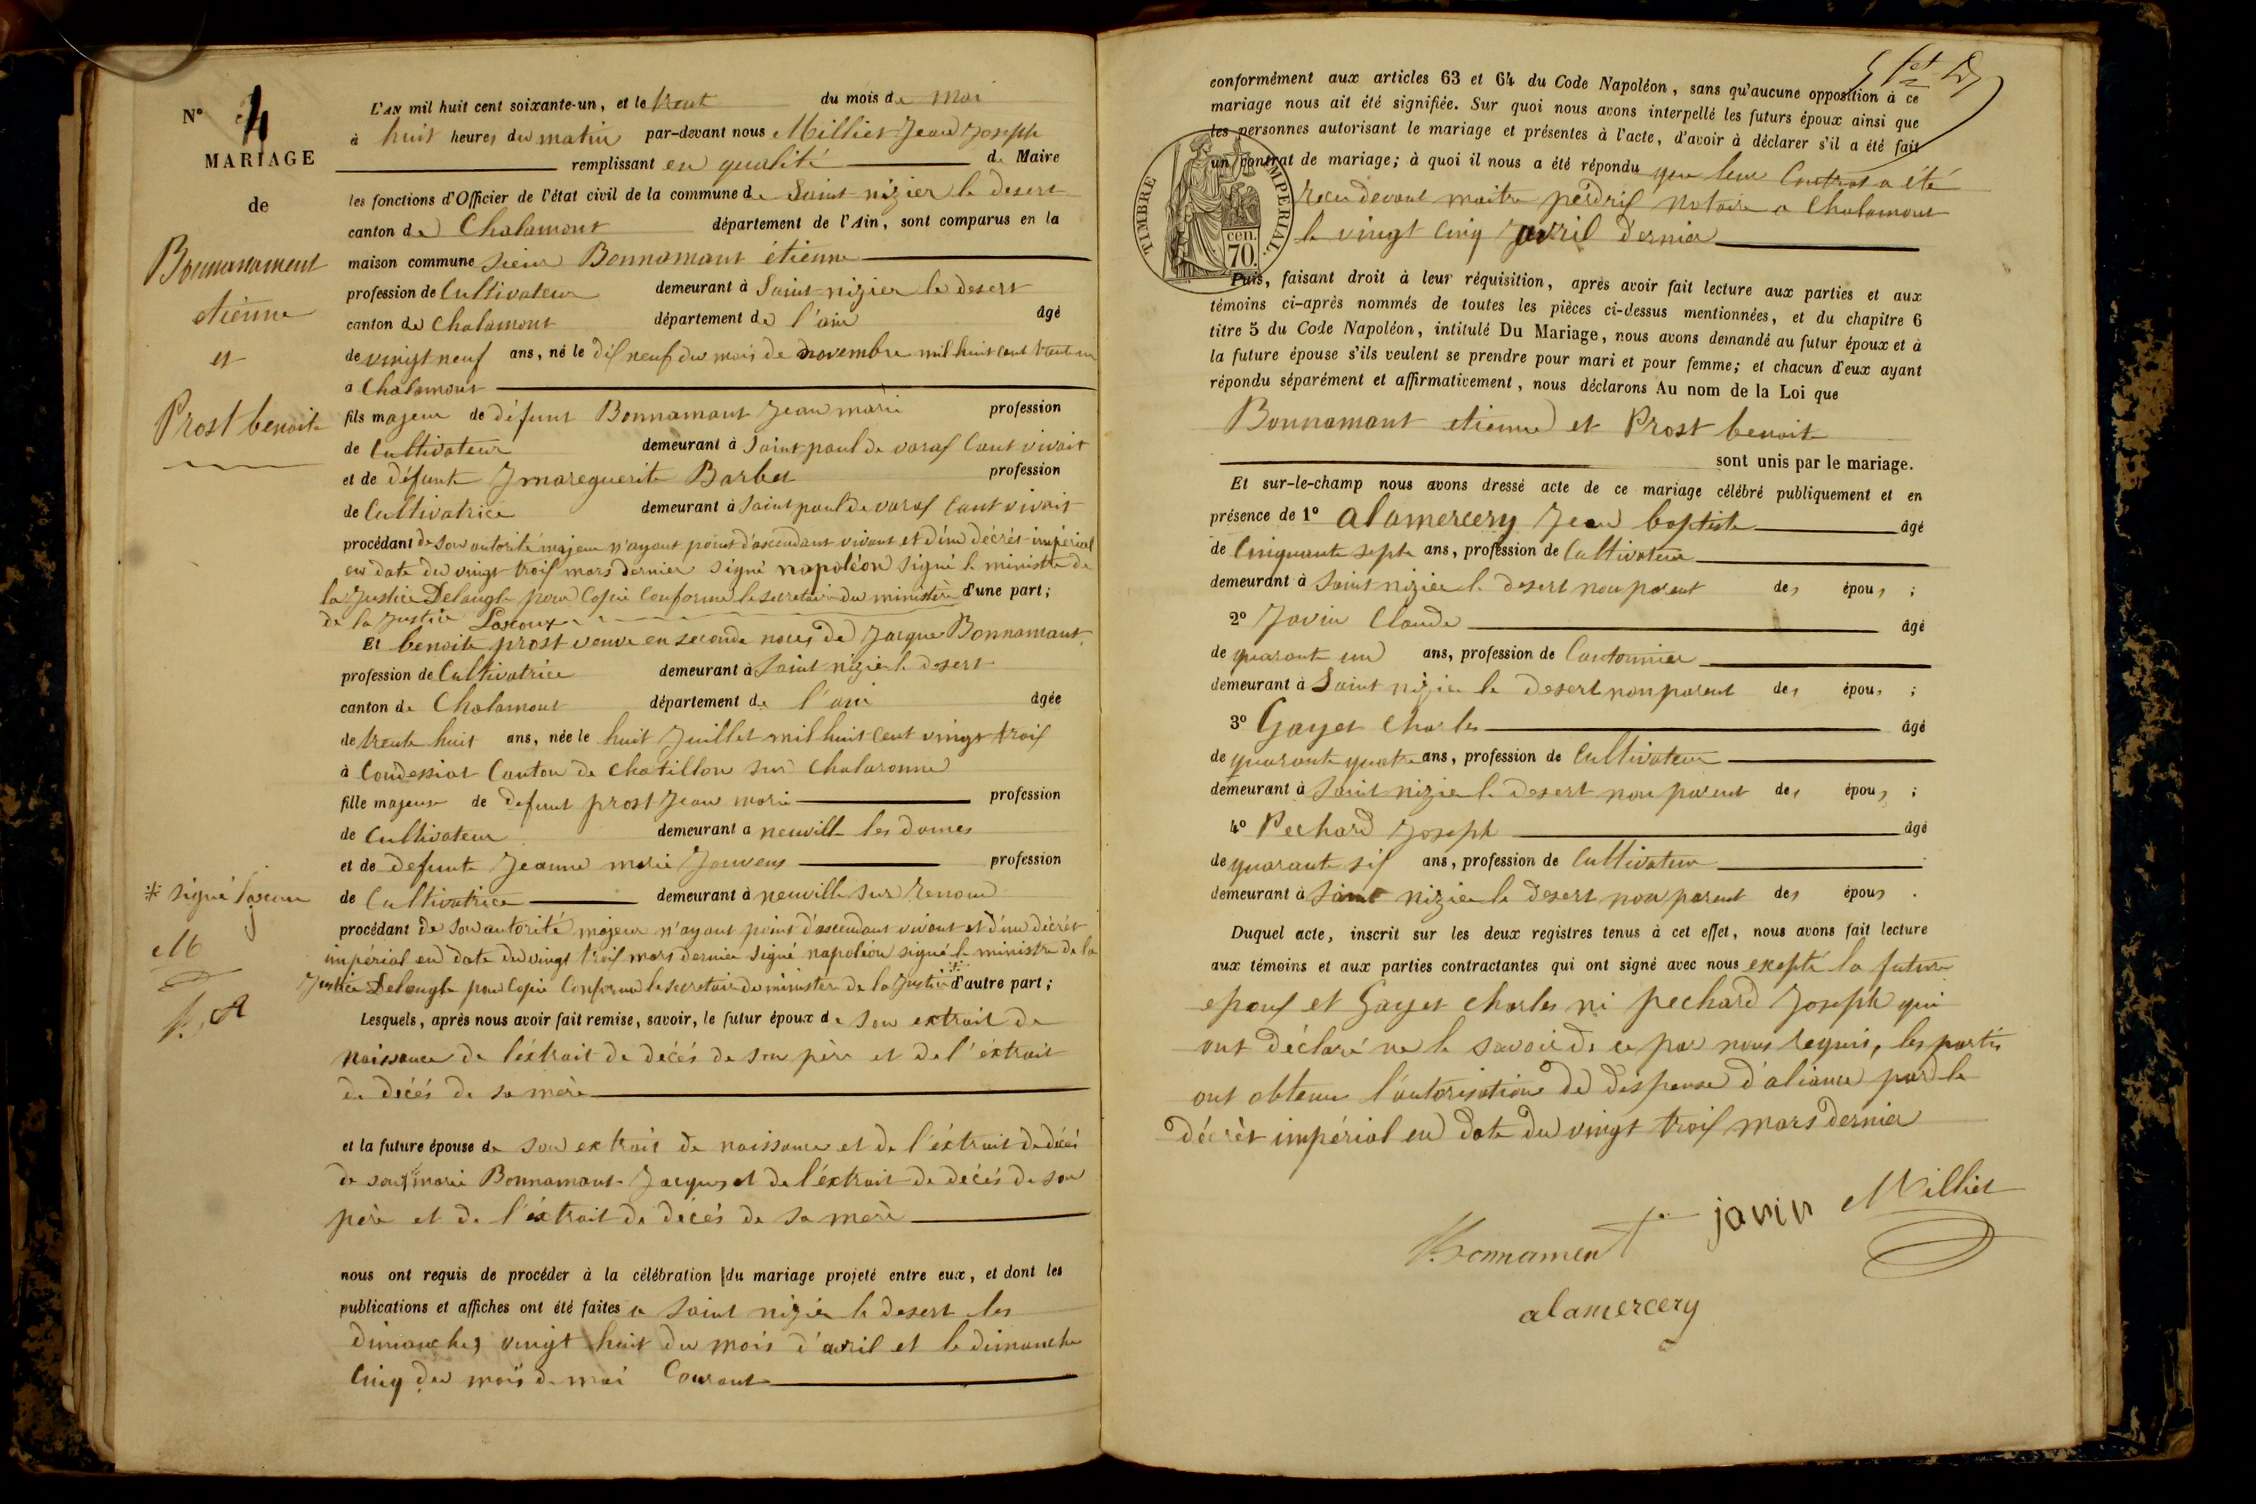 N° 4
MARIAGE
de
Bonnamament
etienne
et
Prost benoite
L'AN mil huit cent soixante-un, et le trente du mois de Mai
à huit heures du matin par-devant nous Milliet Jean Joseph
remplissant en qualité de Maire
les fonctions d'Officier de l'état civil de la commune de Saint nizier le desert
canton de Chalamont département de l'Ain, sont comparus en la
maison commune sieur Bonnamant étienne
profession de Cultivateur demeurant à Saint nizier le desert
canton de Chalamont département de l'ain âgé
de vingt neuf ans, né le dix neuf du mois de novembre mil huit cent trent un
a Chalamont
fils majeur de défunt Bonnamant Jean marie profession
de Cultivateur demeurant à Saint paul de varax Cant vivait
et de défunte marguerite Barbet profession
de Cultivatrice demeurant à Saint paul de varax Cant vivait
procédant de son autorité majeur n'ayant point d'ascendant vivant et d'un décrét impérial
en date du vingt trois mars dernier signé napoléon signé le ministre de
la Justice Delangle pour Copie Conforme le secretaire du ministère d'une part;
de la Justice Lascoux
Et benoite prost veuve en seconde noces de Jacque Bonnamant
profession de Cultivatrice demeurant à Saint nizier le desert
canton de Chalamont département de l'ain âgée
de trente huit ans, née le huit Juillet mil huit cent vingt trois
à Condessiat Canton de Chatillon sur Chalaronne
fille majeure de defunt prost Jean marie profession
de Cultivateur demeurant a neuville les dames
et de defunte Jeanne marie Jouvens profession
de Cultivatrice demeurant à neuville sur Renom
procédant de son autorité majeur n'ayant point d'ascendant vivant et d'un décrét
impérial en date du vingt trois mars dernier signé napoléon signé le ministre de la
Justice Delangle pour Copie Conforme le secretaire du minister de la Justice * d'autre part;
* signé Lascoux
M
Lesquels, après nous avoir fait remise, savoir, le futur époux de son extrait de
naissance de l'éxtrait de décés de son père et de l'éxtrait
de décés de sa mère
et la future épouse de son extrait de naissance et de l'éxtrait de décés
de son marie Bonnamant Jacques et de l'éxtrait de décés de son
père et de l'éxtrait de décés de sa mère
nous ont requis de procéder à la célébration du mariage projeté entre eux, et dont les
publications et affiches ont été faites a Saint nizier le desert les
dimanches vingt huit du mois d'avril et le dimanche
Cinq du mois de mai Courant
conformément aux articles 63 et 64 du Code Napoléon, sans qu'aucune opposition à ce
mariage nous ait été signifiée. Sur quoi nous avons interpellé les futurs époux ainsi que
les personnes autorisant le mariage et présentes à l'acte, d'avoir à déclarer s'il a été fait
un contrat de mariage; à quoi il nous a été répondu que leur Contrat a été
recu devant maitre perdrix notaire a Chalamont
le vingt Cinq avril dernier
TIMBRE IMPERIAL.
70. cen.
Puis, faisant droit à leur réquisition, après avoir fait lecture aux parties et aux
témoins ci-après nommés de toutes les pièces ci-dessus mentionnées, et du chapitre 6
titre 5 du Code Napoléon, intitulé Du Mariage, nous avons demandé au futur époux et à
la future épouse s'ils veulent se prendre pour mari et pour femme; et chacun d'eux ayant
répondu séparément et affirmativement, nous déclarons Au nom de la Loi que
Bonnamant etienne et Prost benoite
sont unis par le mariage.
Et sur-le-champ nous avons dressé acte de ce mariage célébré publiquement et en
présence de 1° alamercery Jean baptiste âgé
de Cinquante septe ans, profession de Cultivateur
demeurant à Saint nizier le desert non parent des épous ;
2° Javin Claude âgé
de quarante un ans, profession de Cantonnier
demeurant à Saint nizier le desert non parent des épous ;
3° Gayet Charles âgé
de quarante quatre ans, profession de Cultivateur
demeurant à Saint nizier le desert non parent des épous ;
4° Pechard Joseph âgé
de quarante six ans, profession de Cultivateur
demeurant à Saint nizier le desert non parent des épous .
Duquel acte, inscrit sur les deux registres tenus à cet effet, nous avons fait lecture
aux témoins et aux parties contractantes qui ont signé avec nous exepté la future
epoux et Gayet Charles ni pechard Joseph qui
ont déclaré ne le savoir de ce par nous requis, les partis
ont obtenu l'autorisation de dispense d'aliance par le
décrèt impérial en date du vingt trois mars dernier
Bonnament javin Milliet
alamercery